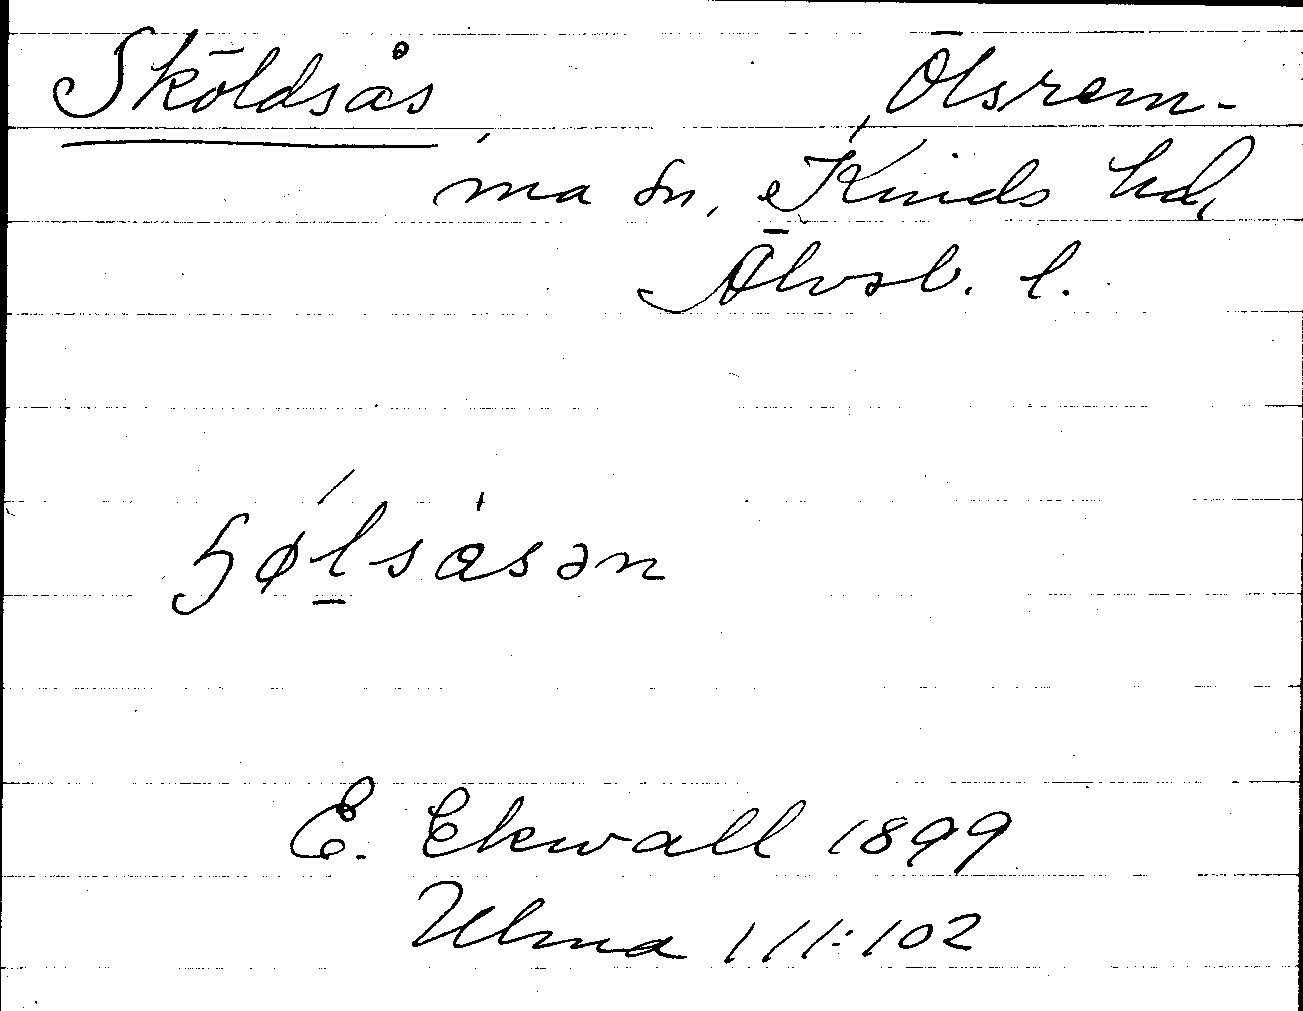 Sköldsås Ölsrem-
ma sn, Kinds hd,
Älvsb. l.
ʃǿl̠sásən
E. Ekwall 1899
Ulma 111:102